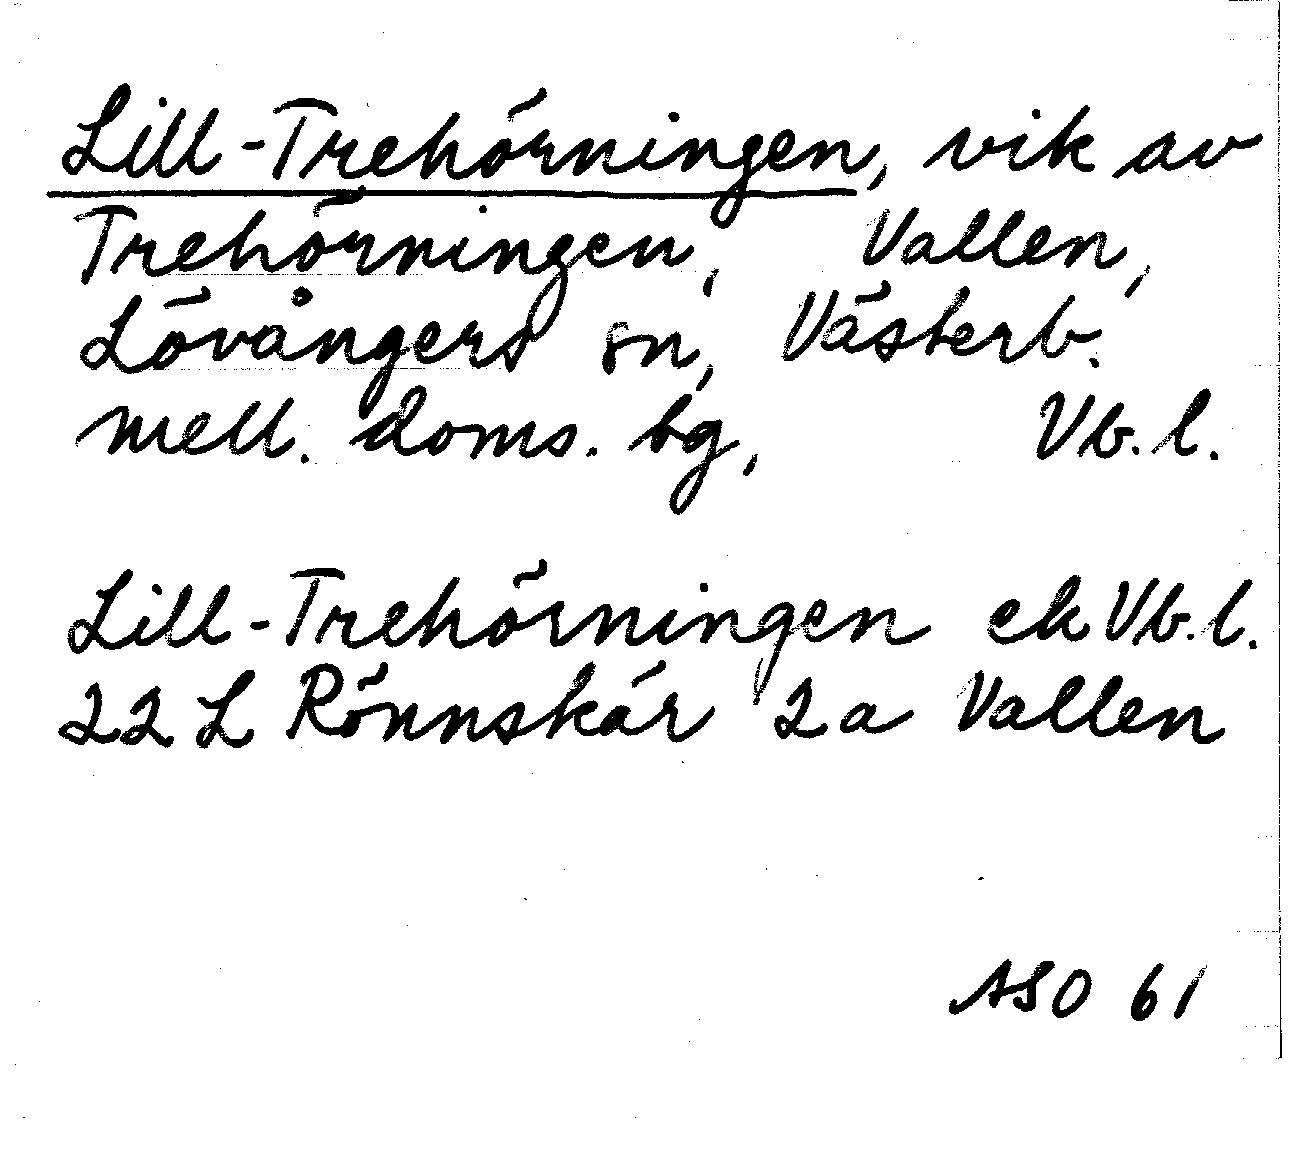 Lill-Trehörningen, vik av
Trehörningen, Vallen,
Lövångers sn, Västerb.
mell. doms. bg, Vb. l.
Lill-Trehörningen ek Vb. l.
22 L Rönnskär 2 a Vallen
ASO 61